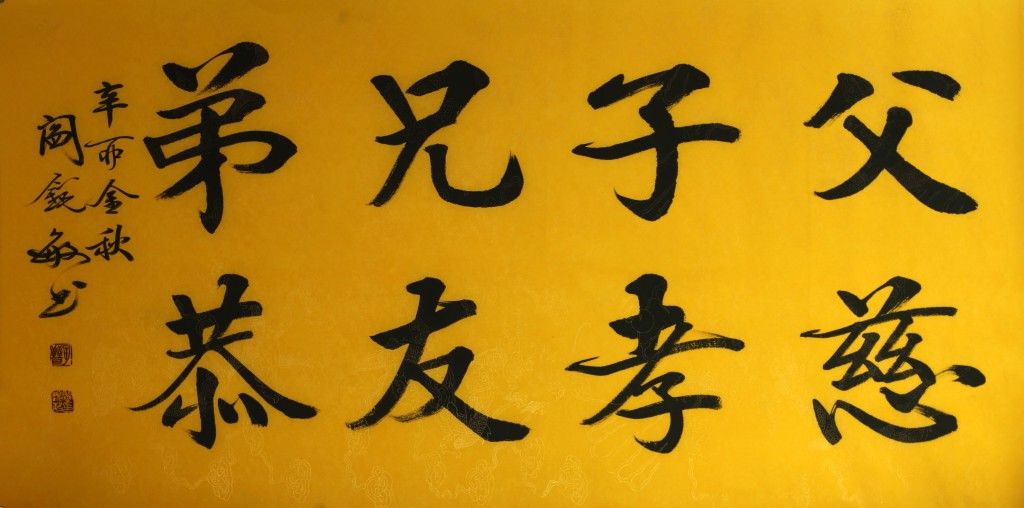 父慈
子孝
兄友
弟恭
辛丑金秋
阎锐敏书